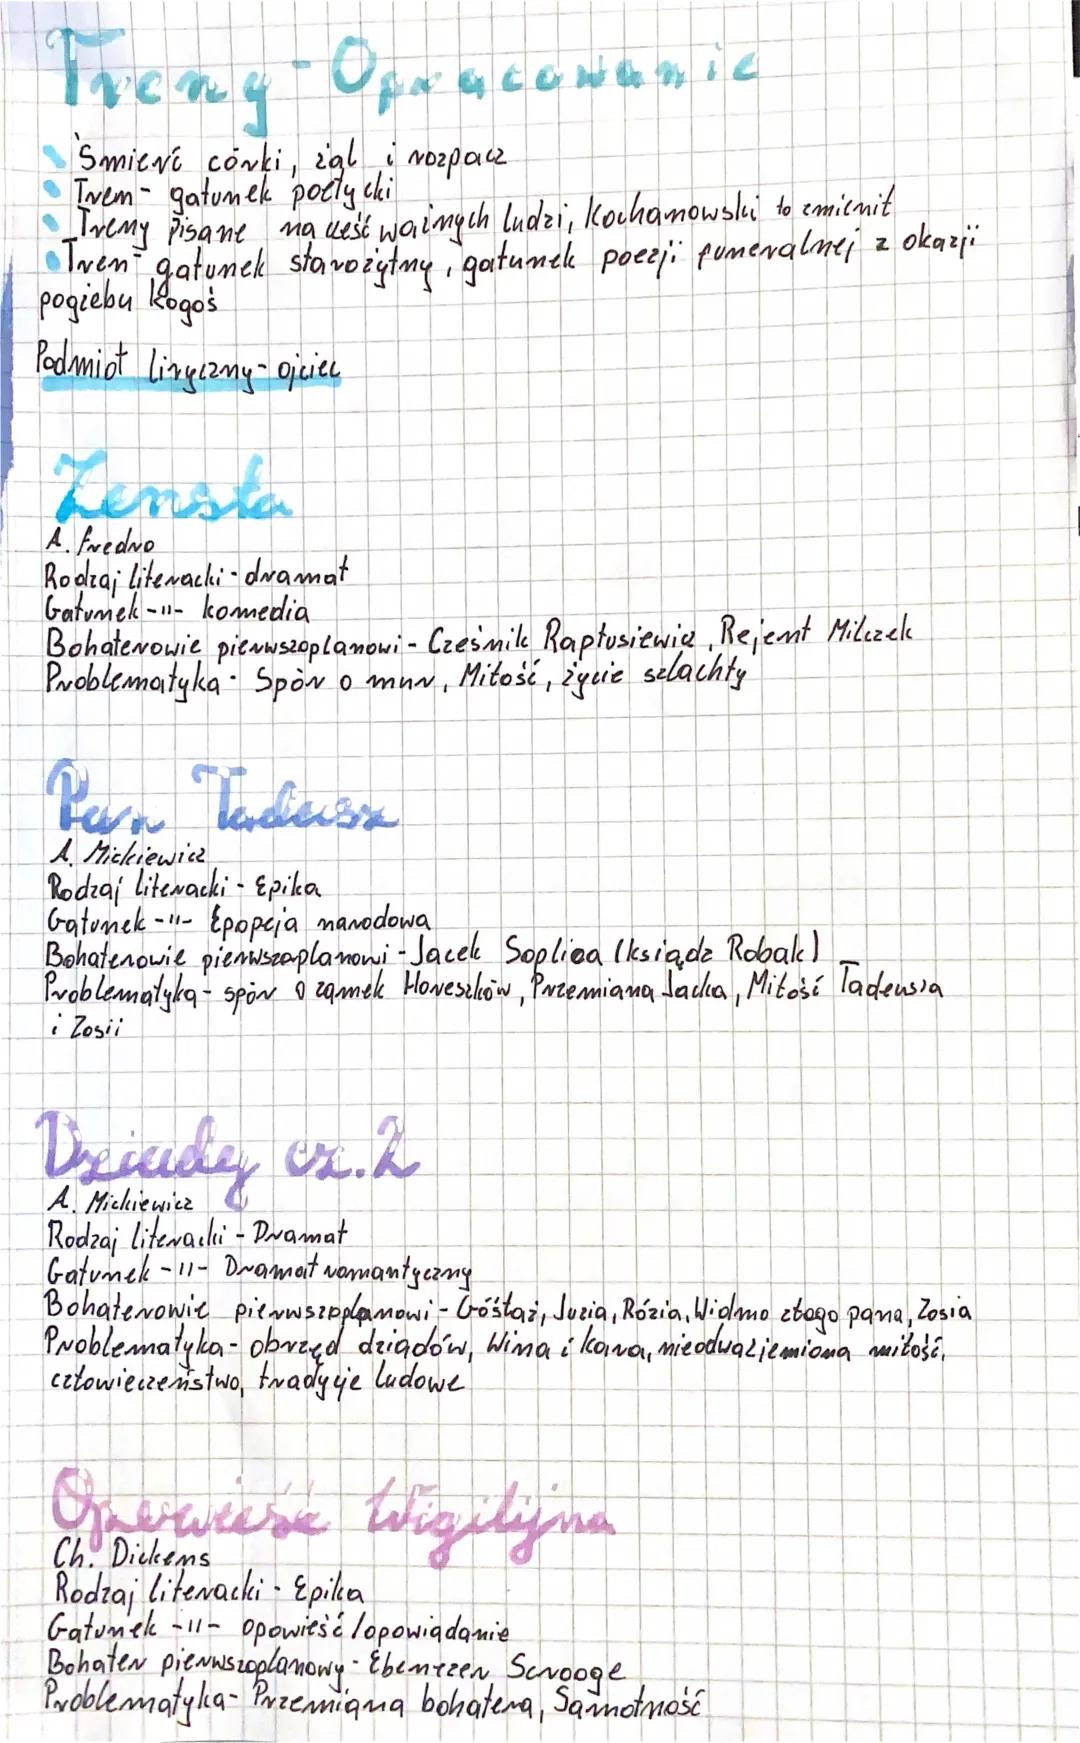 Treny - Opracowanie
Śmierć córki, żal i rozpacz
Tren - gatunek poetycki
Treny pisane na cześć ważnych ludzi, Kochanowski to zmienił
Tren - gatunek starożytny, gatunek poezji funeralnej z okazji
pogżebu kogoś
Podmiot liryczny - ojciec
Zemsta
A. Fredro
Rodzaj literacki - dramat
Gatunek -11- komedia
Bohaterowie pierwszoplanowi - Cześnik Raptusiewicz, Rejent Milczek
Problematyka - Spór o mur, Miłość, życie szlachty
Pan Tadeusz
A. Mickiewicz
Rodzaj literacki - Epika
Gatunek -11- Epopeja narodowa
Bohaterowie pierwszoplanowi - Jacek Soplica (ksiądz Robak)
Problematyka - spór o zamek Horeszków, Przemiana Jacka, Miłość Tadeusza
i Zosii
Dziady cz. 2
A. Mickiewicz
Rodzaj literacki - Dramat
Gatunek -11- Dramat romantyczny
Bohaterowie pierwszoplanowi - Góślarz, Juzia, Rózia, Widmo złego pana, Zosia
Problematyka - obrzęd dziadów, Wina i kara, nieodwzajemiona miłość,
człowieczeństwo, tradycje ludowe
Opowieść Wigilijna
Ch. Dickens
Rodzaj literacki - Epika
Gatunek -11- opowieść/opowiadanie
Bohater pierwszoplanowy - Ebenezer Scrooge
Problematyka - Przemiana bohatera, Samotność